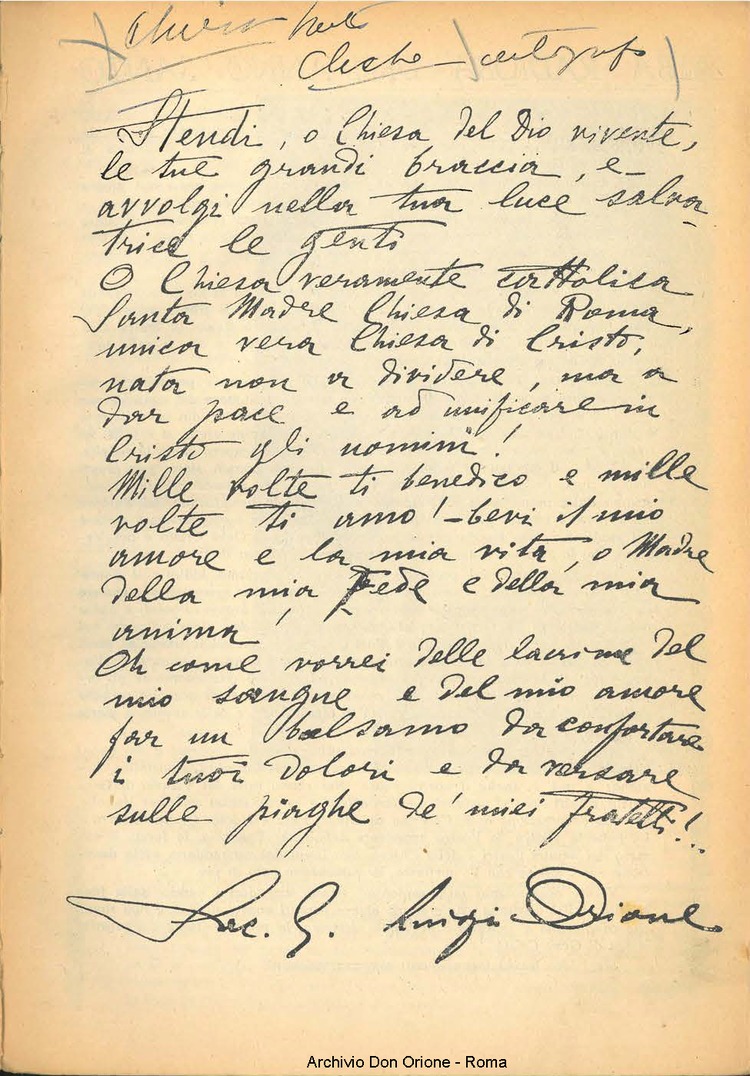 Cliché – autografo
Stendi, o Chiesa del Dio vivente,
le tue grandi braccia, e
avvolgi nella tua luce salva-
trice le genti
O Chiesa veramente cattolica
Santa Madre Chiesa di Roma,
unica vera Chiesa di Cristo,
nata non a dividere, ma a
dar pace e ad unificare in
Cristo gli uomini!
Mille volte ti benedico e mille
volte ti amo! – bevi il mio
amore e la mia vita, o Madre
della mia Fede e della mia
anima!
Oh come vorrei delle lacrime del
mio sangue e del mio amore
far un balsamo da confortare
i tuoi dolori e da versare
sulle piaghe de' miei fratelli!..
Sac. G. Luigi Orione
Archivio Don Orione - Roma